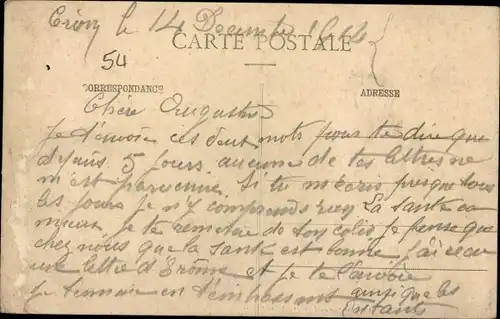 le 14 Decembre 1914
CARTE POSTALE
54
CORRESPONDANCE
ADRESSE
Chère Augusta
Je t'envoie ces deux mots pour te dire que
depuis 5 jours aucune de tes lettres ne
m'est parvenue. Si tu m'écris presque tous
les jours je n'y comprends rien La santé va
mieux. Je te remercie de ton colis Je pense que
chez nous que la santé est bonne, j'ai reçu
une lettre d' et je te l'envoie
Je termine en t'embrassant ainsi que les
enfants